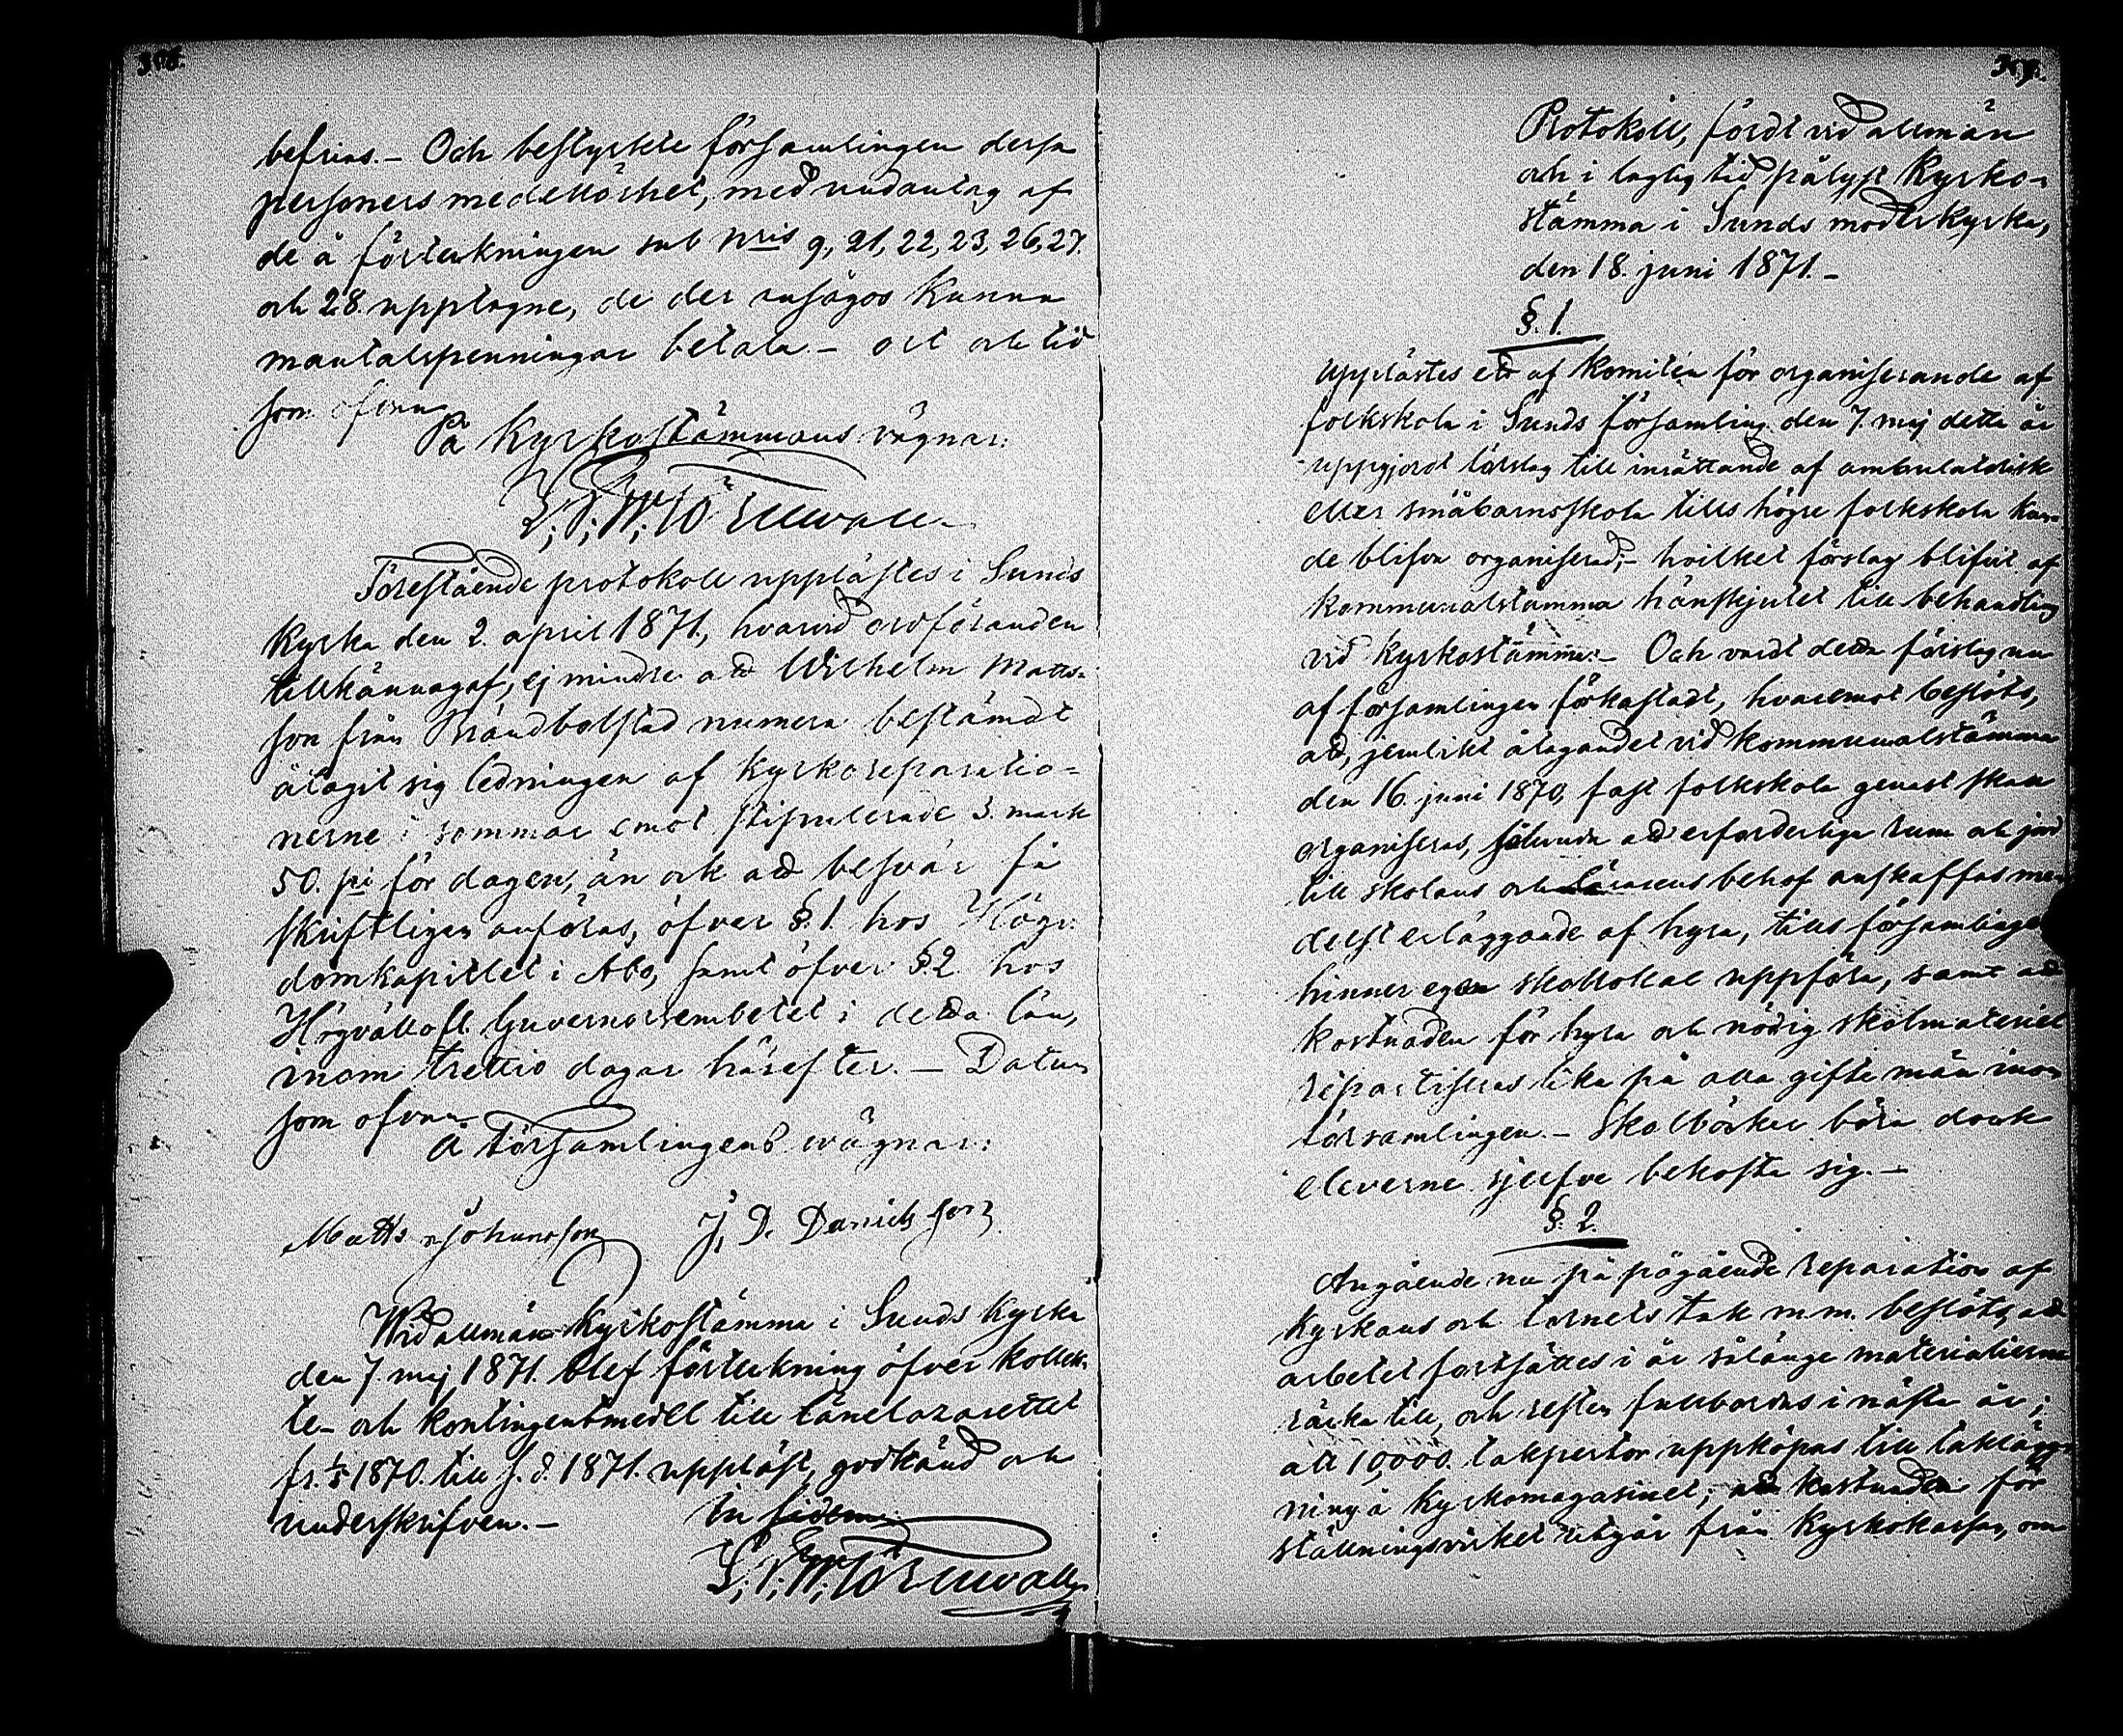 befrias. – Och bestyrkte församlingen dessa
personers medellöshet, med undantag af
de å förteckningen sub Nris 9, 21, 22, 23, 26, 27.
och 28. upptagne, de der ansågos kunna
mantalspenningar betala. – ort och tid
som ofvan
På Kyrkostämmans vägnar:
Förestående protokoll upplästes i Sunds
kyrka den 2. april 1871., hvarvid ordföranden
tillkännagaf, ej mindre att Wilhelm Matts-
son från Brändbolstad numera bestämdt
åtagit sig ledningen af kyrkoreparatio-
nerne i sommar emot stipulerade 3. mark
50. pi för dagen, än ock att besvär få
skriftligen anföras, öfver §. 1. hos Högv.
domkapitlet i Åbo, samt öfver §. 2. hos
Högvällofl. Guvernörsembetet i detta län,
inom trettio dagar härefter. – Datum
som ofvan
Å Församlingens vägnar:
Matts Johansson J. D. Danielsson
Vid allmän Kyrkostämma i Sunds kyrka
den 7. maj 1871. blef förteckning öfver kollek-
te- och kontingentmedel till länelazarettet
fr. 1/5 1870. till s. d. 1871. uppläst, godkänd och
underskrifven. – In fidem
Protokoll, fördt vid allmän
och i laglig tid pålyst Kyrko-
stämma i Sunds moderkyrka,
den 18. juni 1871. –
§. 1.
Upplästes ett af komitén för organiserande af
folkskola i Sunds församling den 7. maj detta år
uppgjordt förslag till inrättande af ambulatorisk
eller småbarnsskola tills högre folkskola hun-
de blifva organiserad; – hvilket förslag blifvit af
kommunalstämma hänskjutet till behandling
vid kyrkostämma. – Och vardt detta förslag nu
af församlingen förkastadt, hvaremot beslöts,
att, jemlikt åtagandet vid kommunalstämma
den 16. juni 1870, fast folkskola genast skall
organiseras, sålunda att erforderliga rum och jord
till skolans och lärarens behof anskaffas me-
delst erläggande af hyra, tills församlingen
hinner egen skollokal uppföra, samt att
kostnaden för hyra och nödig skolmateriel
repartiseras lika på alla gifta män inom
församlingen. – Skolböcker böra dock
eleverne sjelfve bekosta sig. –
§. 2.
Angående nu på pågående reparation af
kyrkans och tornets tak m.m. beslöts, att
arbetet fortsättes i år sålänge materialierna
räcka till, och resten fullbordas i nästa år;
att 10,000. takpertor uppköpas till takläg-
ning å kyrkomagasinet; att kostnaden för
ställningsvirket utgår från kyrkokassan, om